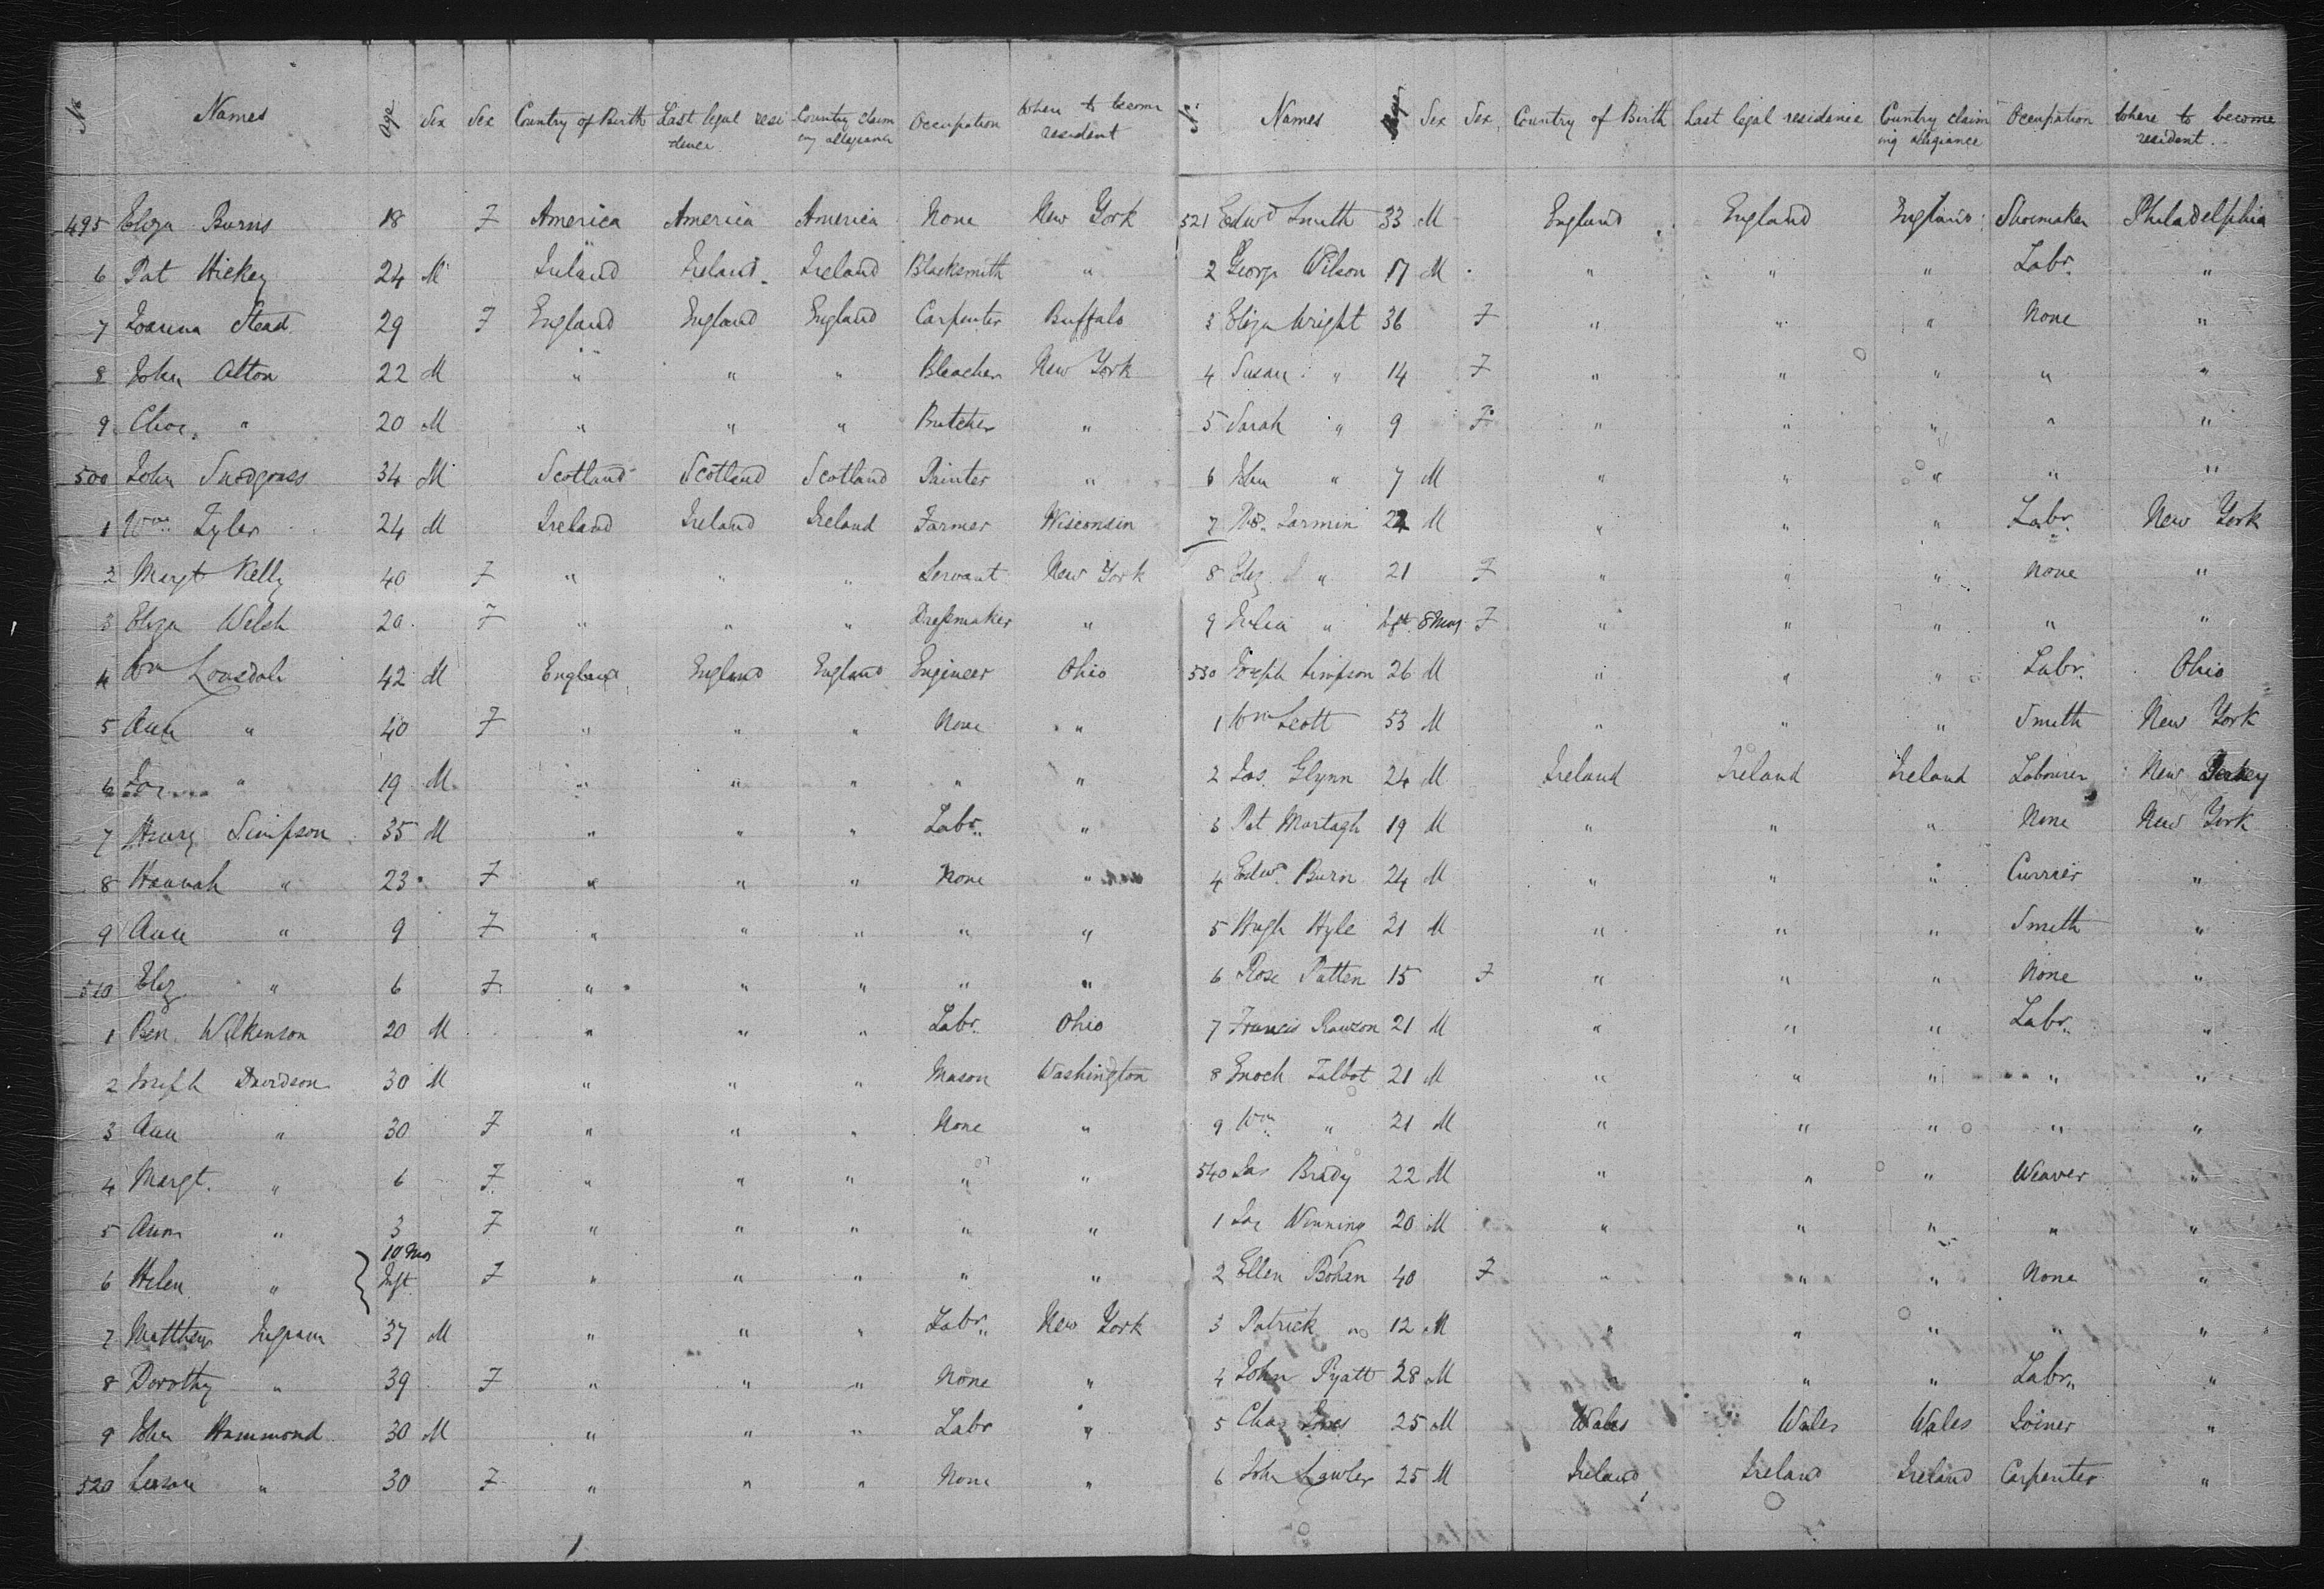 No Names Age Sex Sex Country of Birth Last legal resi- Country claim Occupation Where to become
dence ing allegiance resident
495 Eliza Burns 18 F America America America None New York
6 Pat Hickey 24 M Ireland Ireland Ireland Blacksmith "
7 Joanna Stead 29 F England England England Carpenter Buffalo
8 John Alton 22 M " " " Bleacher New York
9 " 20 M " " " Butcher "
500 John Snodgrass 34 M Scotland Scotland Scotland Painter "
1 Wm Tyler 24 M Ireland Ireland Ireland Farmer Wisconsin
2 Margt Kelly 40 F " " " Servant New York
3 Eliza Welsh 20 F " " " Dressmaker "
4 Wm Lonsdale 42 M England England England Engineer Ohio
5 Ann " 40 F " " " None "
6 " 19 M " " " " "
7 Henry Simpson 35 M " " " Labr "
8 Hannah " 23 F " " " None "
9 Ann " 9 F " " " " "
510 Eliz " 6 F " " " " "
1 Ben Wilkinson 20 M " " " Labr Ohio
2 Joseph Davidson 30 M " " " Mason Washington
3 Ann " 30 F " " " None "
4 Margt. " 6 F " " " " "
5 Ann " 3 F " " " " "
6 Helen " 10 Mos Inft F " " " " "
7 Matthew Ingram 37 M " " " Labr New York
8 Dorothy " 39 F " " " None "
9 John Hammond 30 M " " " Labr "
520 Susan " 30 F " " " None "
No Names Age Sex Sex Country of Birth Last legal residence Country claim Occupation Where to become
ing allegiance resident
521 Edwd Smith 33 M England England England Shoemaker Philadelphia
2 George Wilson 17 M " " " Labr "
3 Eliza Wright 36 F " " " None "
4 Susan " 14 F " " " " "
5 Sarah " 9 F " " " " "
6 John " 7 M " " " " "
7 Jarmin M " " " Labr New York
8 Eliz " 21 F " " " None "
9 Julia " Inft 8 Mos F " " " " "
530 Joseph Simpson 26 M " " " Labr Ohio
1 Wm Scott 53 M " " " Smith New York
2 Jas Glynn 24 M Ireland Ireland Ireland Labourer New Jersey
3 Pat Murtagh 19 M " " " None New York
4 Edwd Burn 24 M " " " Currier "
5 Hugh Hyle 21 M " " " Smith "
6 Rose Patten 15 F " " " None "
7 Francis Rawson 21 M " " " Labr "
8 Enoch Talbot 21 M " " " " "
9 Wm " 21 M " " " " "
540 Jas Brady 22 M " " " Weaver "
1 Jas Winning 20 M " " " " "
2 Ellen Bohan 40 F " " " None "
3 Patrick " 12 M " " " " "
4 John Pyatt 28 M " " " Labr "
5 Chas Jones 25 M Wales Wales Wales Joiner "
6 John Lawler 25 M Ireland Ireland Ireland Carpenter "